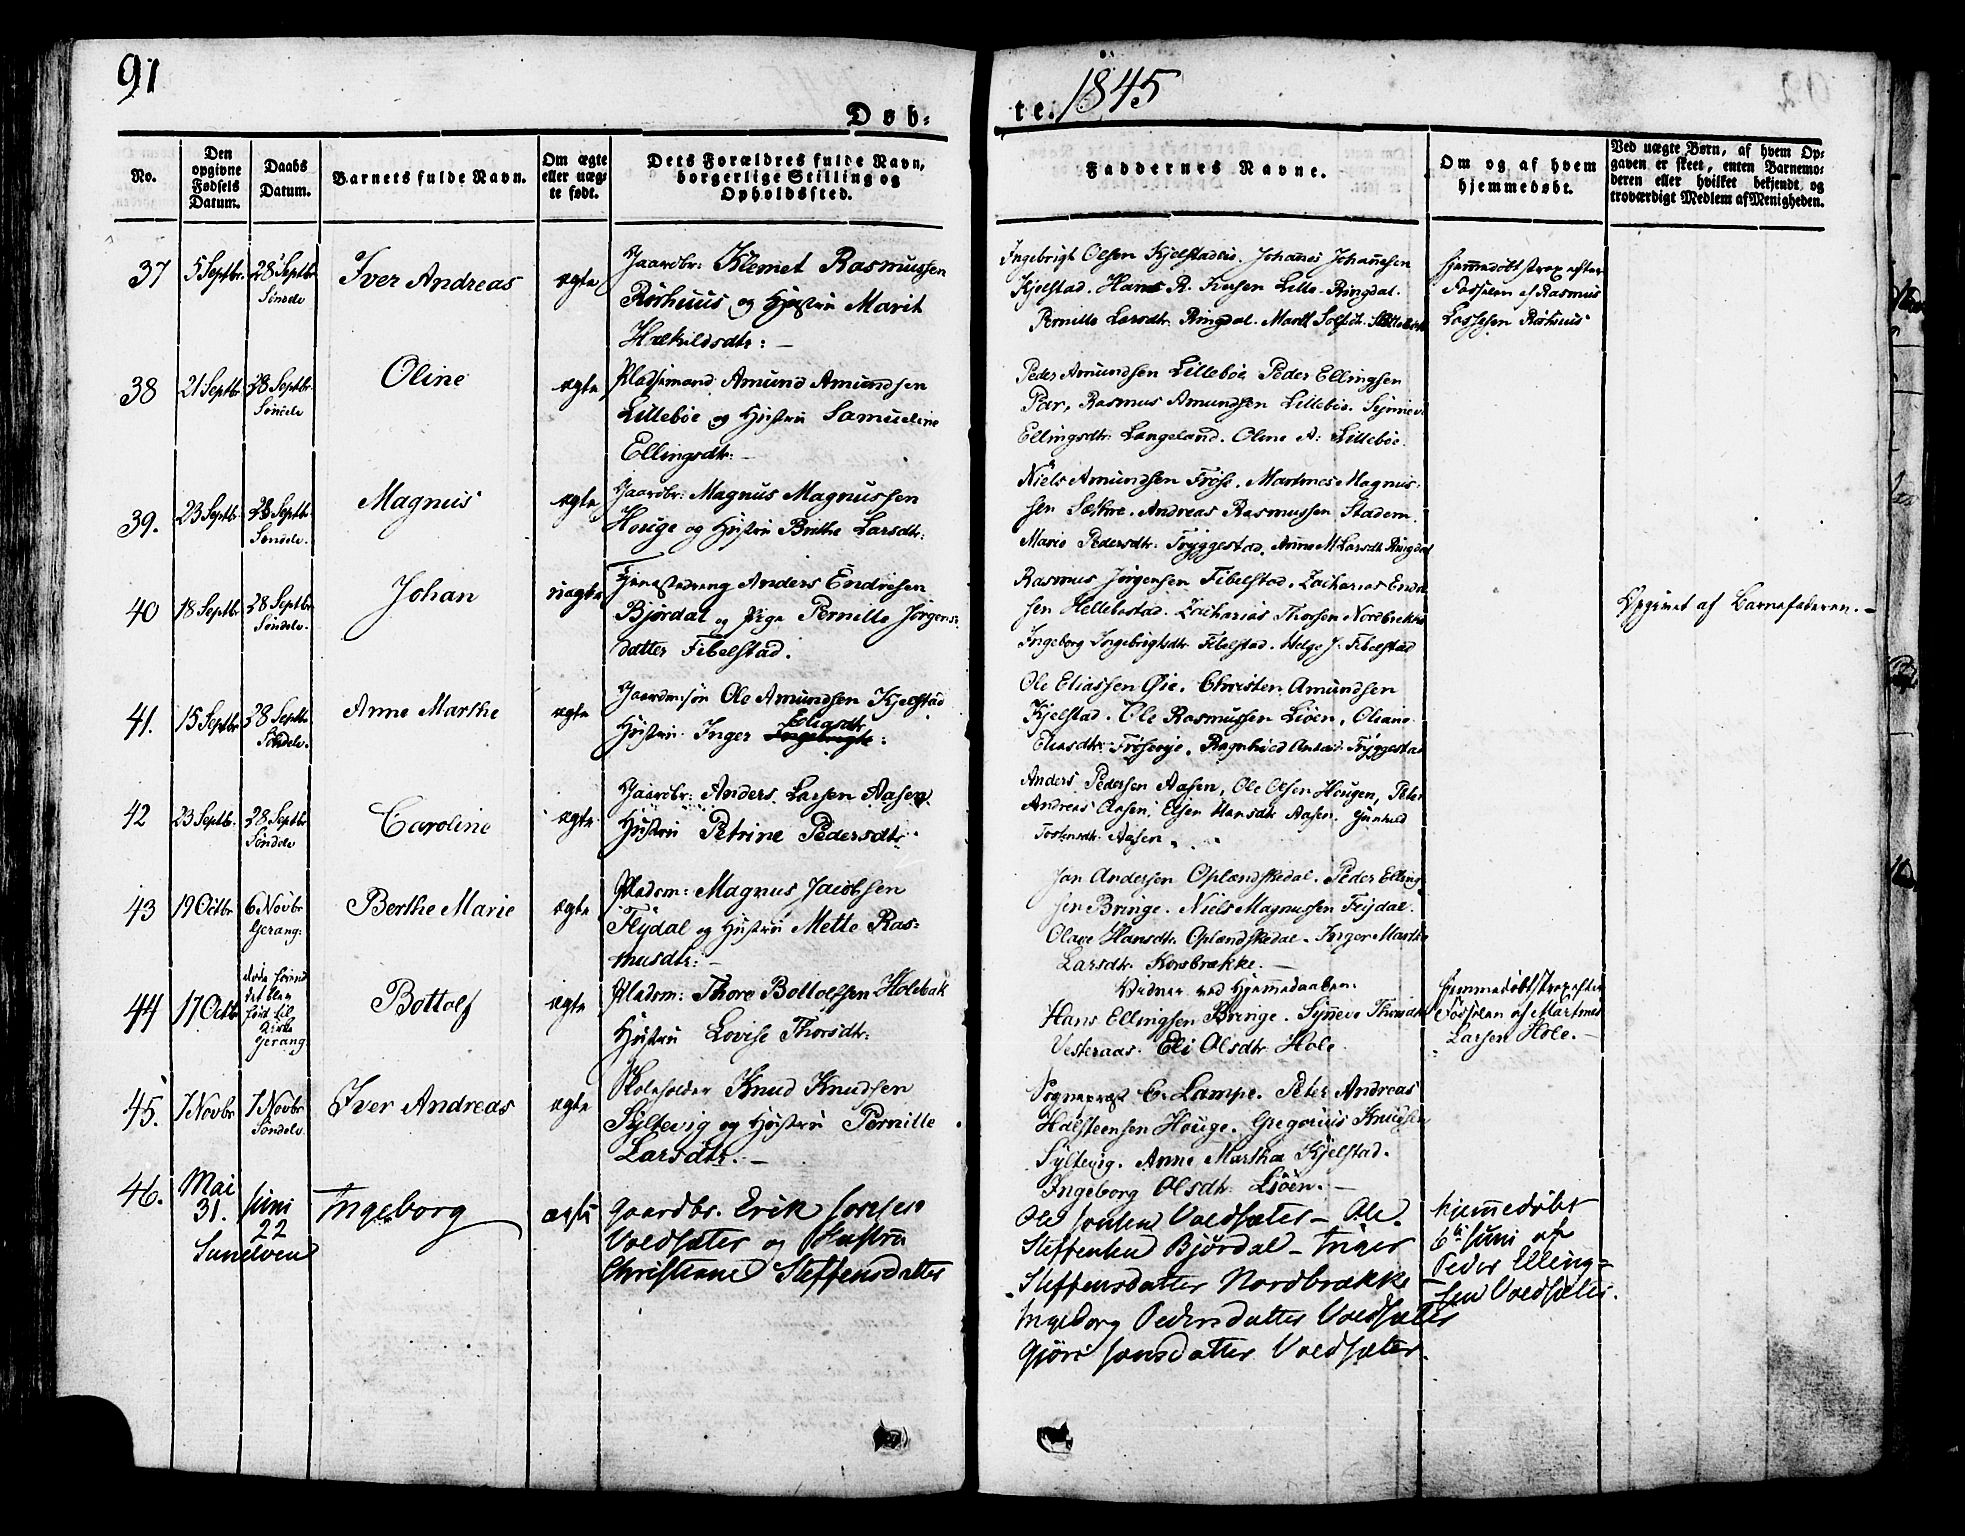 91
Døb=
te. 1845
No.
Den
opgivne
Fødsels
Datum.
Daabs
Datum.
Barnets fulde Navn.
Om ægte
eller uæg-
te født.
Dets Forældres fulde Navn,
borgerlige Stilling og
Opholdssted.
Faddernes Navne.
Om og af hvem
hjemmedøbt.
Ved uægte Børn, af hvem Op-
gaven er skeet, enten Barnemo-
deren eller hvilket bekjendt og
troværdigt Medlem af Menigheden.
37
5 Septbr.
28 Septbr
Søndele
Iver Andreas
ægte
Gaardbr: Klemet Rasmussen
Rørhuus og Hustru Marit
Hækildsdtr: —
Ingebrigt Olsen Kjelstadlie. Johannes Johannesen
Kjelstad. Hans R. Lille Ringdal.
Pernille Larsdtr. Ringdal. Marit
Hjemmedøbt strax efter
Fødselen af Rasmus
Lassesen Rørhuus
38
21 Septbr
28 Septbr.
Søndele
Oline
ægte
Pladsemand Amund Amundsen
Lillebøe og Hustru Samueline
Ellingsdtr: —
Peder Amundsen Lillebøe Peder Ellingsen
Rasmus Amundsen Lillebøe. Synneve
Ellingsdtr. Langeland. Oline A: Lillebøe.
39.
23 Septbr
28 Septbr.
Søndele.
Magnus
ægte
Gaardbr: Magnus Magnussen
Houge og Hustru Brithe Larsdtr:
Niels Amundsen Frøse. Martines Magnus-
sen Sætre. Andreas Rasmussen Stadem.
Marie Pedersdtr: Tryggestad. Anne M Larsdtr Ringdal
40
18 Septbr
28 Septbr
Søndele.
Johan
uægte
Tjenestedreng Anders Endresen
Bjørdal og Pige Pernille Jørgens-
datter Fibelstad.
Rasmus Jørgensen Fibelstad. Zacharias Endre-
sen Hellebostad. Zacharias Thorsen Nordbrække
Ingeborg Ingebrigtsdtr Fibelstad. Helge J. Fibelstad
Opgivet af Barnefaderen. —
41.
15 Septbr
28 Septbr.
Søndele.
Anne Marthe
ægte
Gaardm:søn Ole Amundsen Kjelstad
Eliasdtr
Hustru Inger Ingebrigts:
Ole Eliassen Øie. Christen Amundsen
Kjelstad. Ole Rasmussen Liøen. Oliane
Eliasdtr: Frøseøje. Ragnhild Tryggestad
42
23 Septb.
28 Septbr
Søndele
Caroline
ægte
Gaardbr: Anders Larsen Aasen
Hustru Petrine Pedersdtr:
Anders Pedersen Aasen, Ole Olsen Hougen, Peter
Andreas Aasen. Elsen Hansdtr Aasen. Gunhild
Torstensdtr. Aasen.
43
19 Octbr
6 Novbr
Gerang:
Berthe Marie
ægte
Pladsm: Magnus Jacobsen
Flydal og Hustru Mette Ras-
musdtr: —
Jan Andersen Oplændskedal. Peder Elling-
sen Bringe. Niels Magnussen Flydal.
Olave Hansdtr. Oplændskedal. Inger Marthe
Larsdtr. Korsbrække. —
44
17 Octb
døde førend
det blev
ført til
Kirke
Gerang
Bottolf
ægte
Pladsm: Thore Bottolfsen Holebak
Hustru Lovise Thorsdtr:
Vidner ved Hjemmedaaben:
Hans Ellingsen Bringe. Synneve Thorsdtr
Vesteraas. Eli Olsdtr. Hole.
Hjemmedøbt strax efter
Fødselen af Martines
Larsen Hole. —
45.
1 Novbr
1 Novbr
Søndele
Iver Andreas
ægte
Skoleholder Knud Knudsen
Syltevig og Hustru Pernille
Larsdtr. —
Sognepræst C. Lampe. Peter Andreas
Holsteensen Houge. Gregorius Knudsen
Syltevig. Anne Martha Kjelstad.
Ingeborg Olsdtr. Liøen. —
46.
Mai
31.
Juni
22
Sundelven
Ingeborg
ægte
Gaardbr. Erik Jonsen
Voldsæter og Hustru
Christiane Steffensdatter
Ole Jonsen Voldsæter — Ole
Steffensen Bjørdal — Inger
Steffensdatter Nordbrække —
Ingeborg Pedersdatter Voldsæter
Gjøri Jonsdatter Voldsæter.
hjemmedøbt
6te Juni af
Peder Elling=
sen Voldsæter.